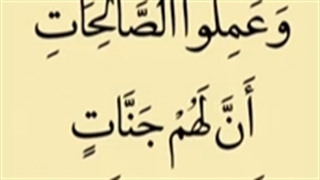 وَعَمِلُوا الصَّالِحَاتِ
أَنَّ لَهُمْ جَنَّاتٍ